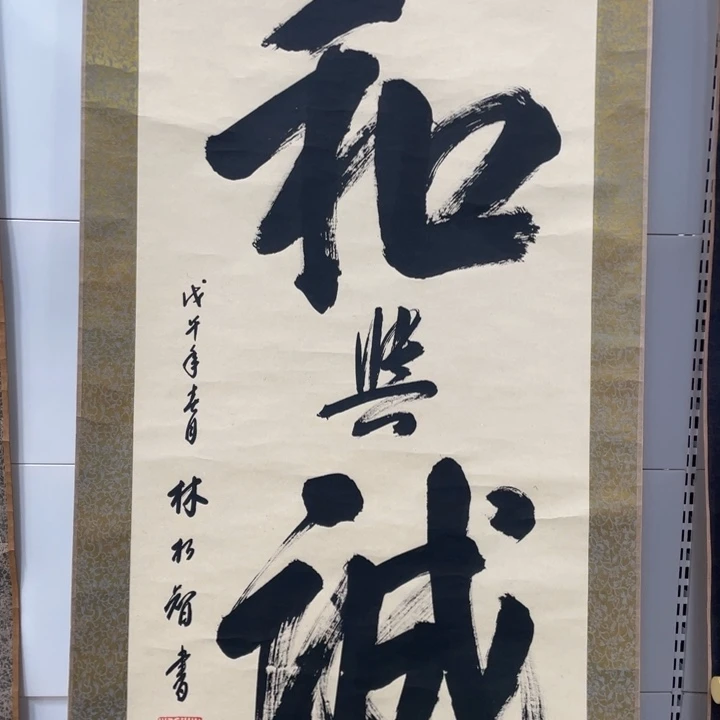 和與誠
戊午年春月
林松智書